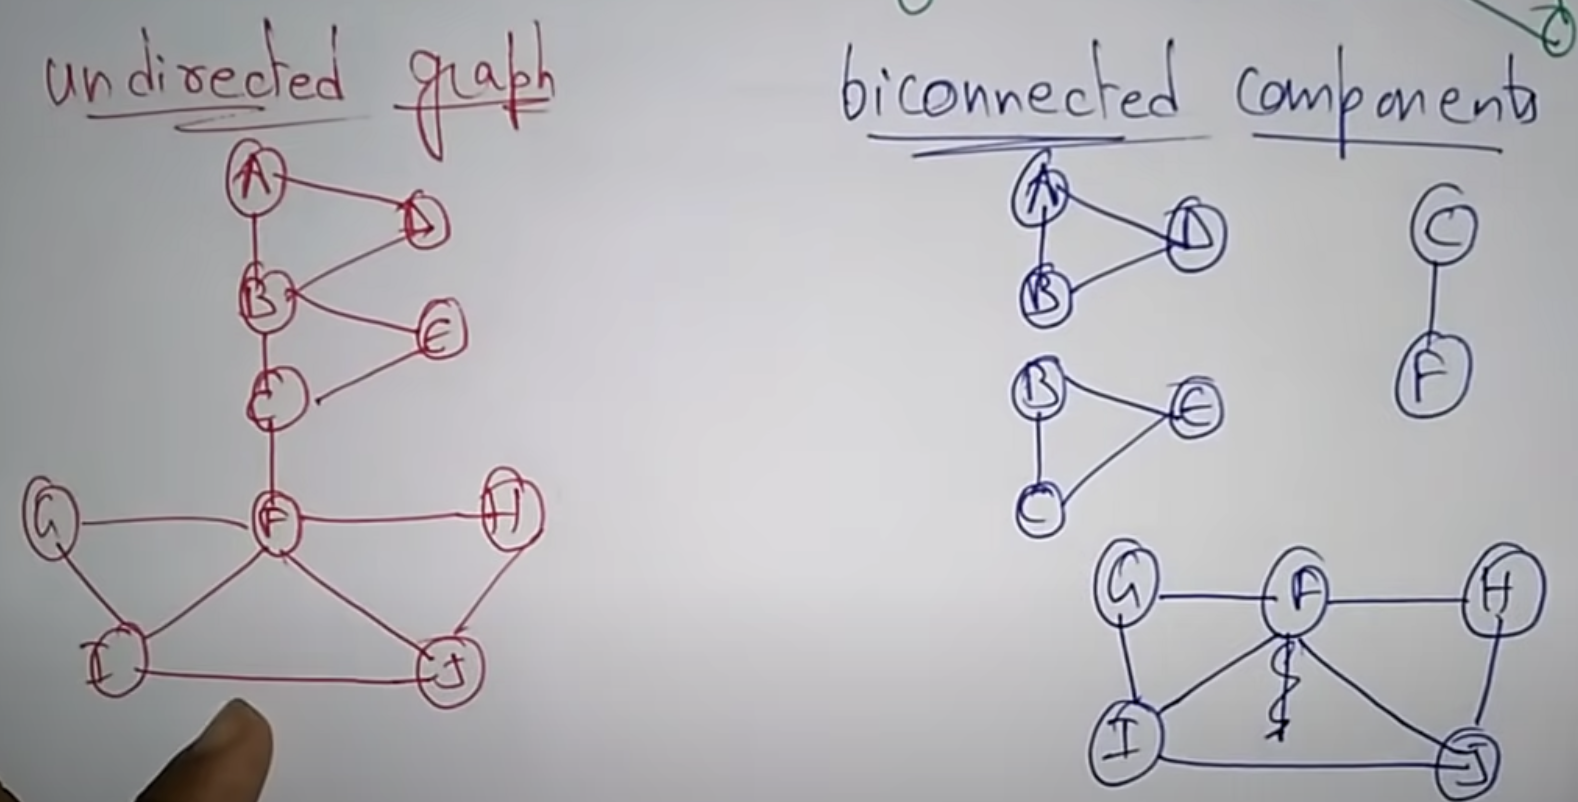 undirected graph
A
D
B
E
C
G
F
H
I
J
biconnected components
A
D
B
C
F
B
E
C
G
F
H
I
J